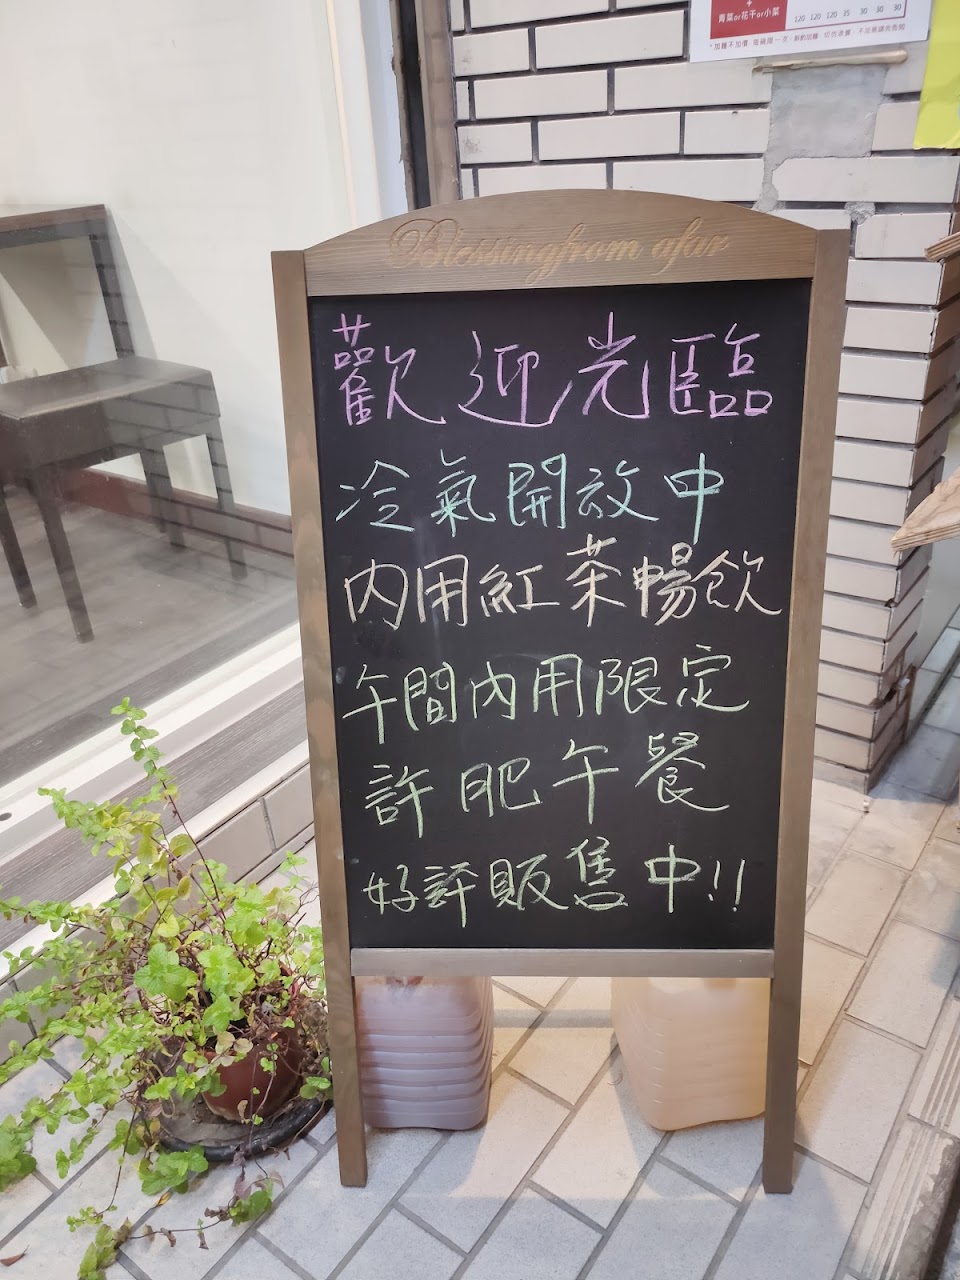 +
青菜or花干or小菜 120 120 120 35 30 30 30
Blessingfrom afar
歡迎光臨
冷氣開放中
內用紅茶暢飲
午間內用限定
許肥午餐
好評販售中!!